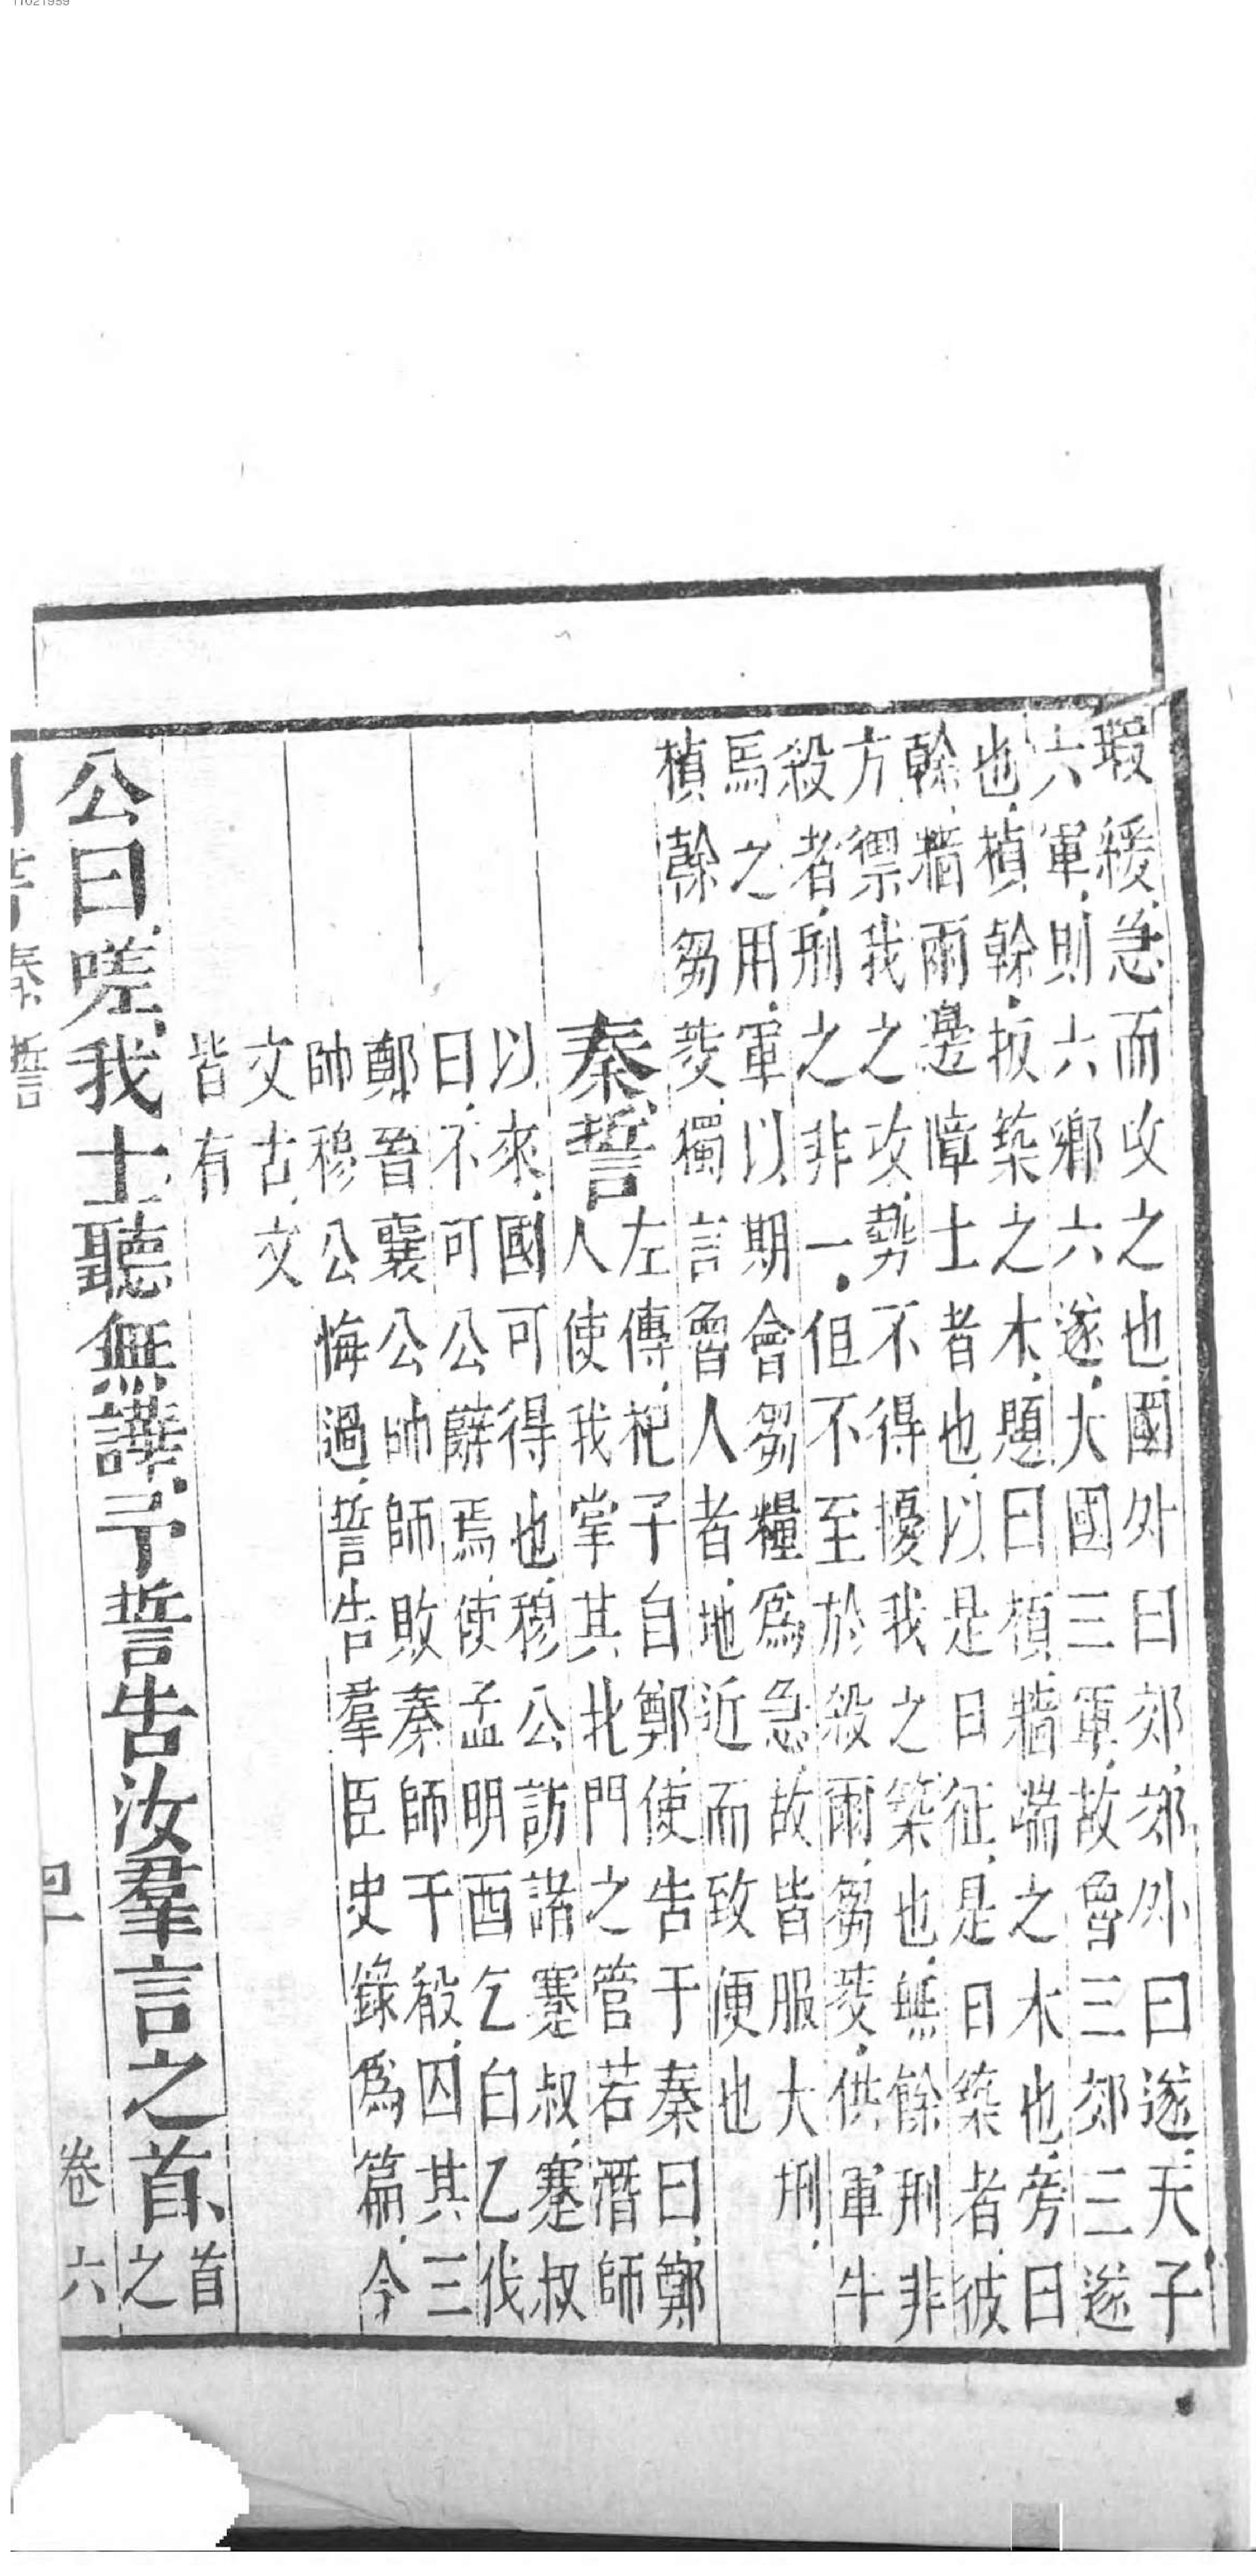 11021959
瑕緩急而攻之也國外曰郊郊外曰遂天子
六軍則六鄉六遂大國三軍故魯三郊三遂
也楨榦板築之木題曰楨牆端之木也旁曰
榦牆兩邊障士者也以是日征是日築者彼
方禦我之攻勢不得擾我之築也無餘刑非
殺者刑之非一但不至於殺爾芻茭供軍牛
馬之用軍以期會芻糧為急故皆服大刑
楨榦芻茭獨言魯人者地近而致便也
秦誓
左傳杞子自鄭使告于秦曰鄭
人使我掌其北門之管若潛師
以來國可得也穆公訪諸蹇叔蹇叔
曰不可公辭焉使孟明西乞白乙伐
鄭晉襄公帥師敗秦師于殽囚其三
帥穆公悔過誓告羣臣史錄為篇今
文古文
皆有
公曰嗟我士聽無譁予誓告汝羣言之首
首
之
秦誓
四一
卷六